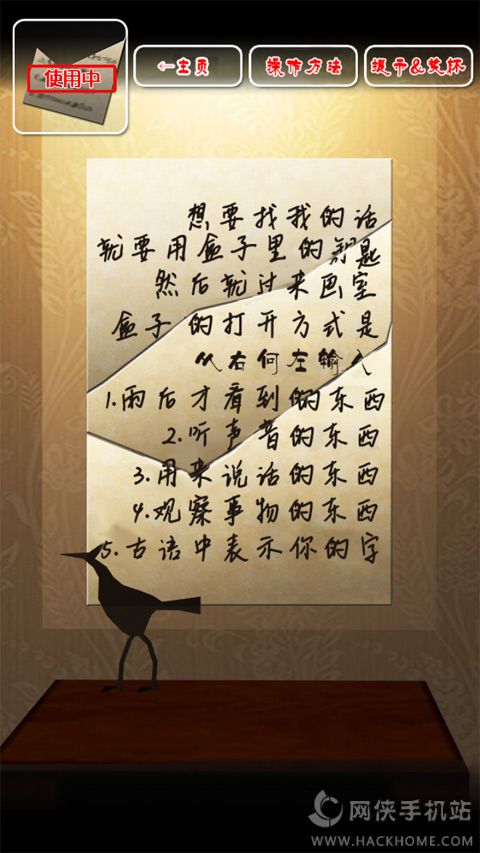 使用中
←主页
操作方法
提示&奖杯
想要找我的话
就要用盒子里的钥匙
然后就过来画室
盒子的打开方式是
从右何左输入
1.雨后才看到的东西
2.听声音的东西
3.用来说话的东西
4.观察事物的东西
5.古语中表示你的字
网侠手机站
WWW.HACKHOME.COM